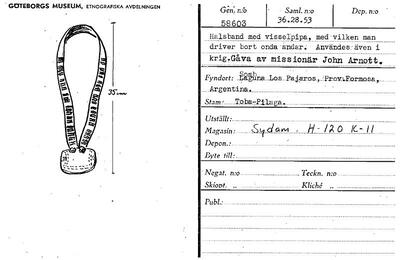 GÖTEBORGS MUSEUM, ETNOGRAFISKA AVDELNINGEN
35 cm
Gen. n:o
58603
Saml. n:o
36.28.53
Dep. n:o
Halsband med visselpipa, med vilken man
driver bort onda andar. Användes även i
krig. Gåva av missionär John Arnott.
Fyndort: Laguna Los Pajaros, Prov. Formosa,
Argentina.
Stam: Toba-Pilaga.
Utställt:
Magasin: Sydam. H-120 K-11
Depon.:
Byte till:
Negat. n:o
Teckn. n:o
Skiopt. „
Kliché „
Publ.: